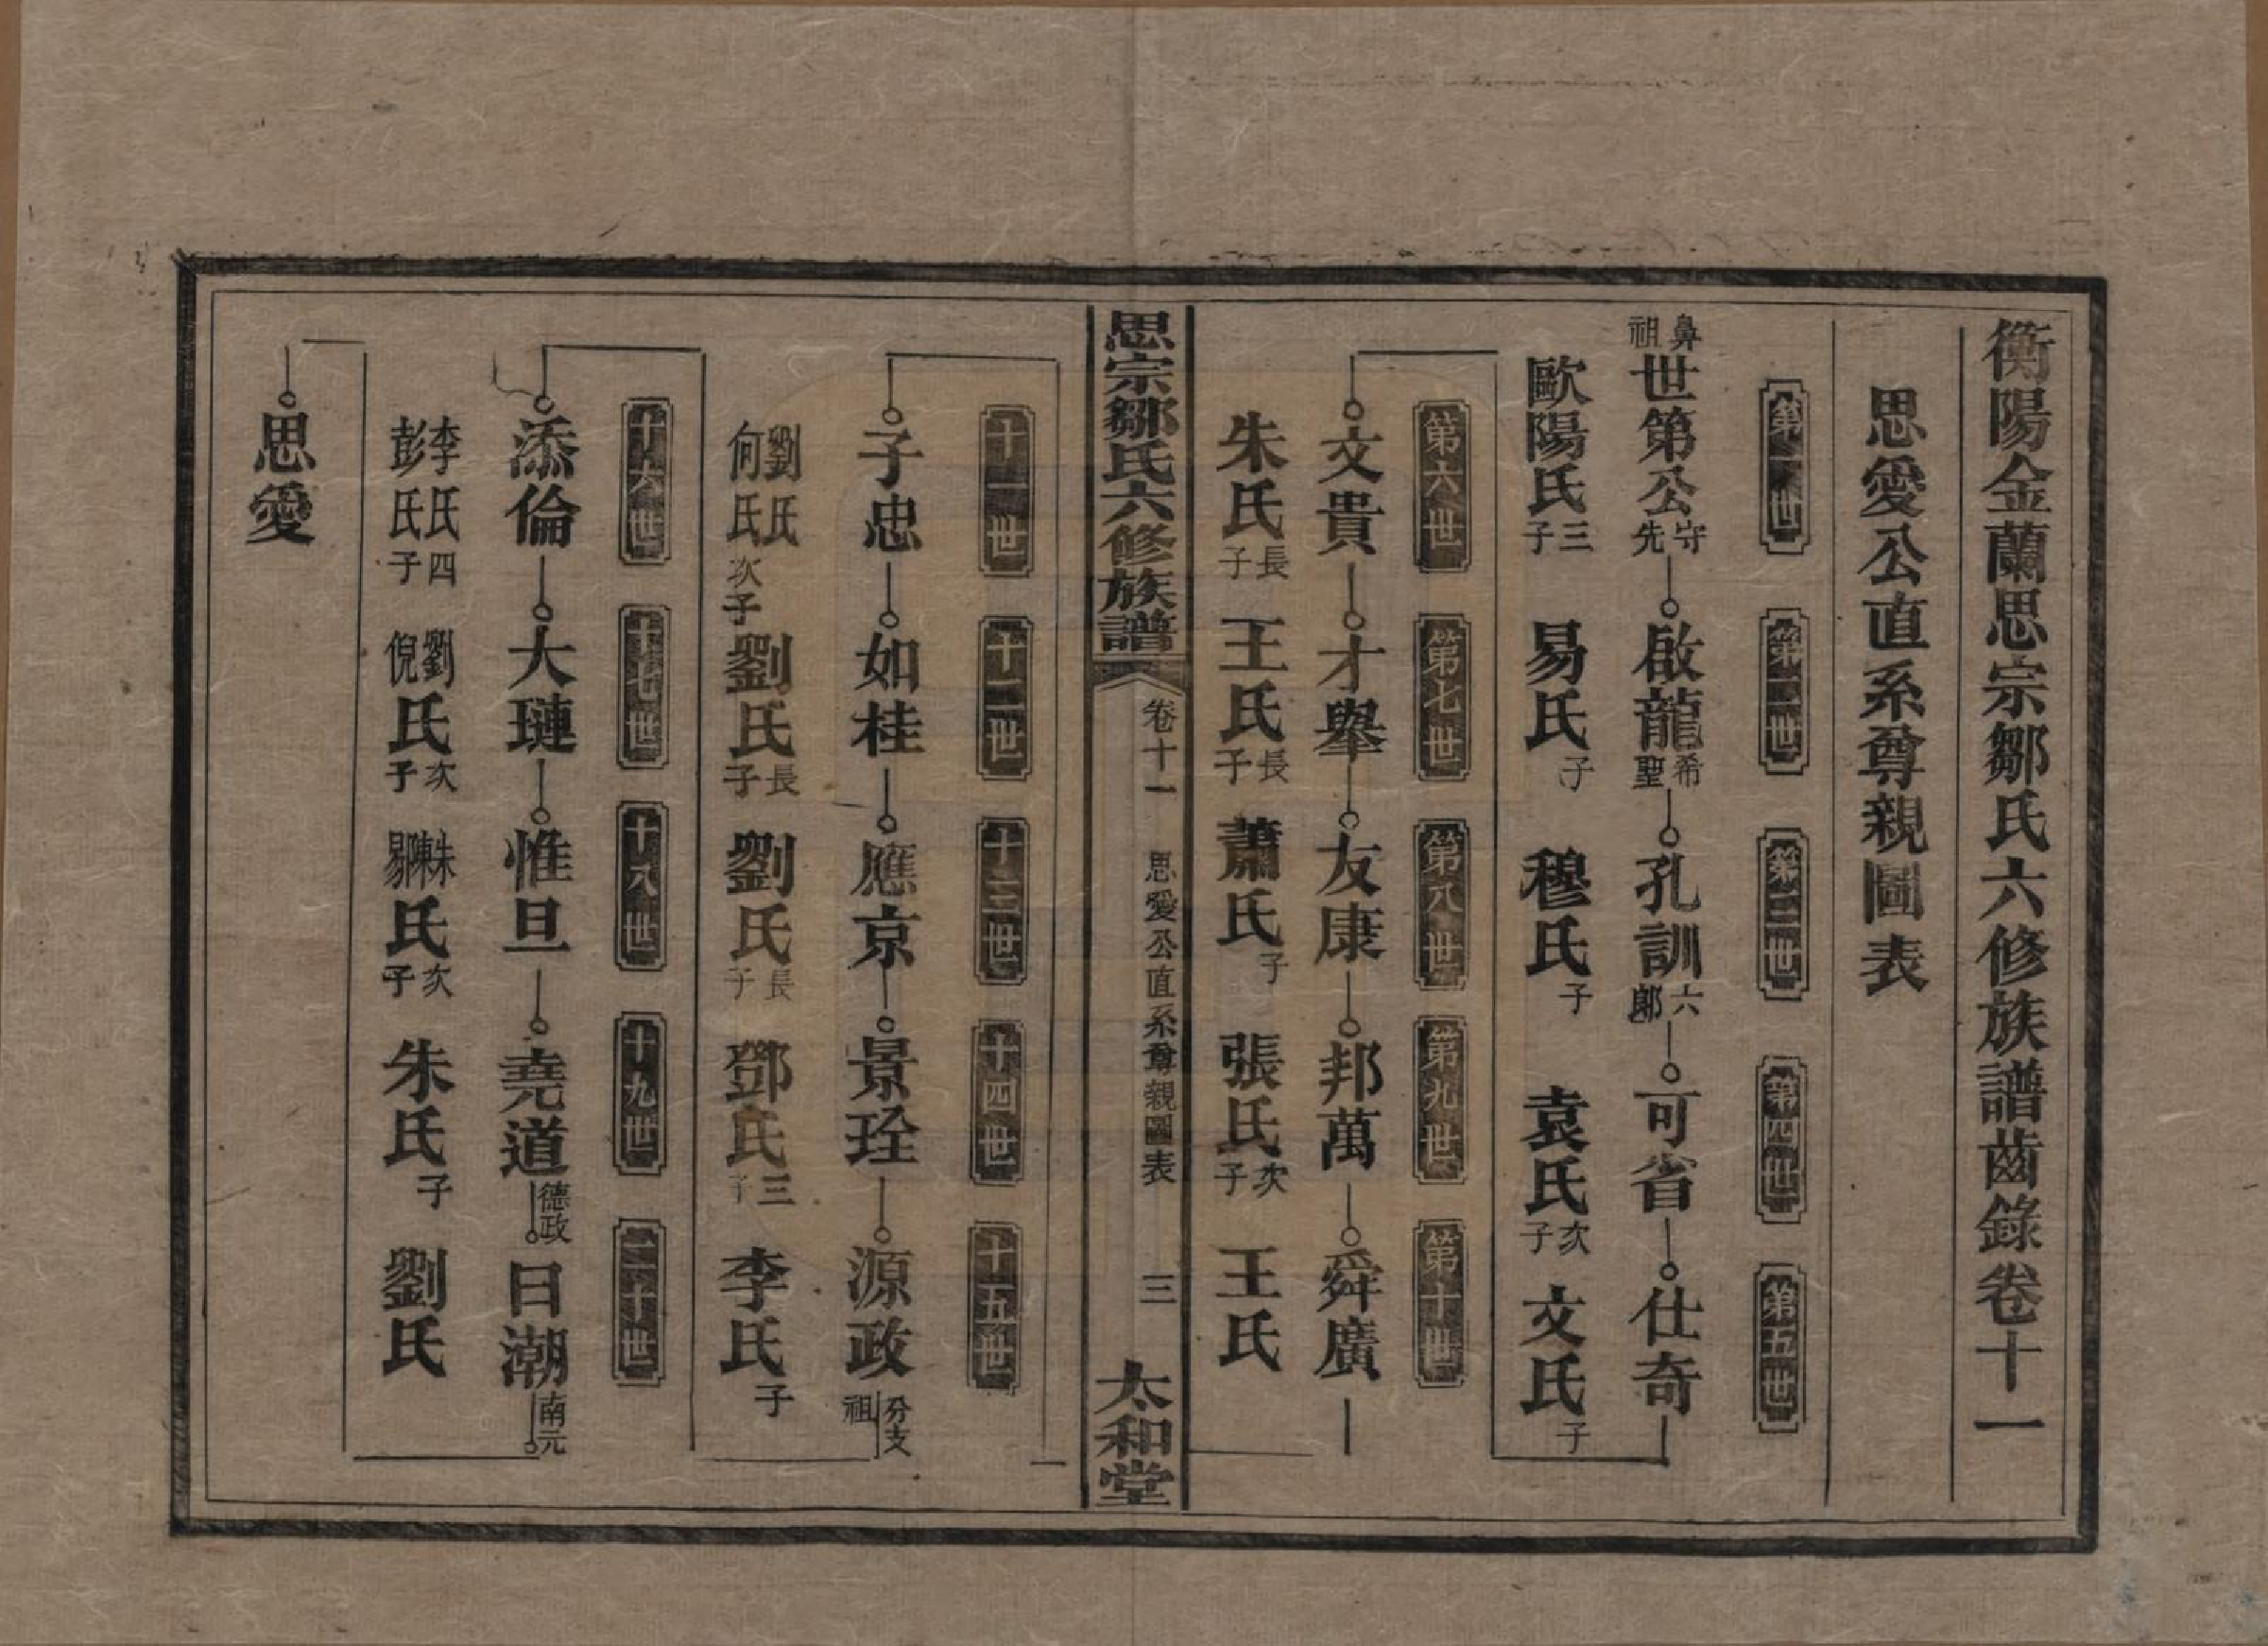 衡陽金蘭思宗鄒氏六修族譜齒錄卷十一
思愛公直系尊親圖表
第一世 第二世 第三世 第四世 第五世
鼻祖 世第公 守先 啟龍 希聖 孔訓 六郎 可省 仕奇
歐陽氏 三子 易氏 子 穆氏 子 袁氏 次子 文氏 子
第六世 第七世 第八世 第九世 第十世
文貴 才舉 友康 邦萬 舜廣
朱氏 長子 王氏 長子 蕭氏 子 張氏 次子 王氏
思宗鄒氏六修族譜 卷十一 思愛公直系尊親圖表 三 太和堂
十一世 十二世 十三世 十四世 十五世
子忠 如桂 應京 景銓 源政 分支祖
劉氏 何氏 次子 劉氏 長子 劉氏 長子 鄧氏 三子 李氏 子
十六世 十七世 十八世 十九世 二十世
添倫 大璉 惟旦 堯道 德政 日潮 南元
李氏 彭氏 四子 劉倪氏 次子 朱陳易氏 次子 朱氏 子 劉氏
思愛